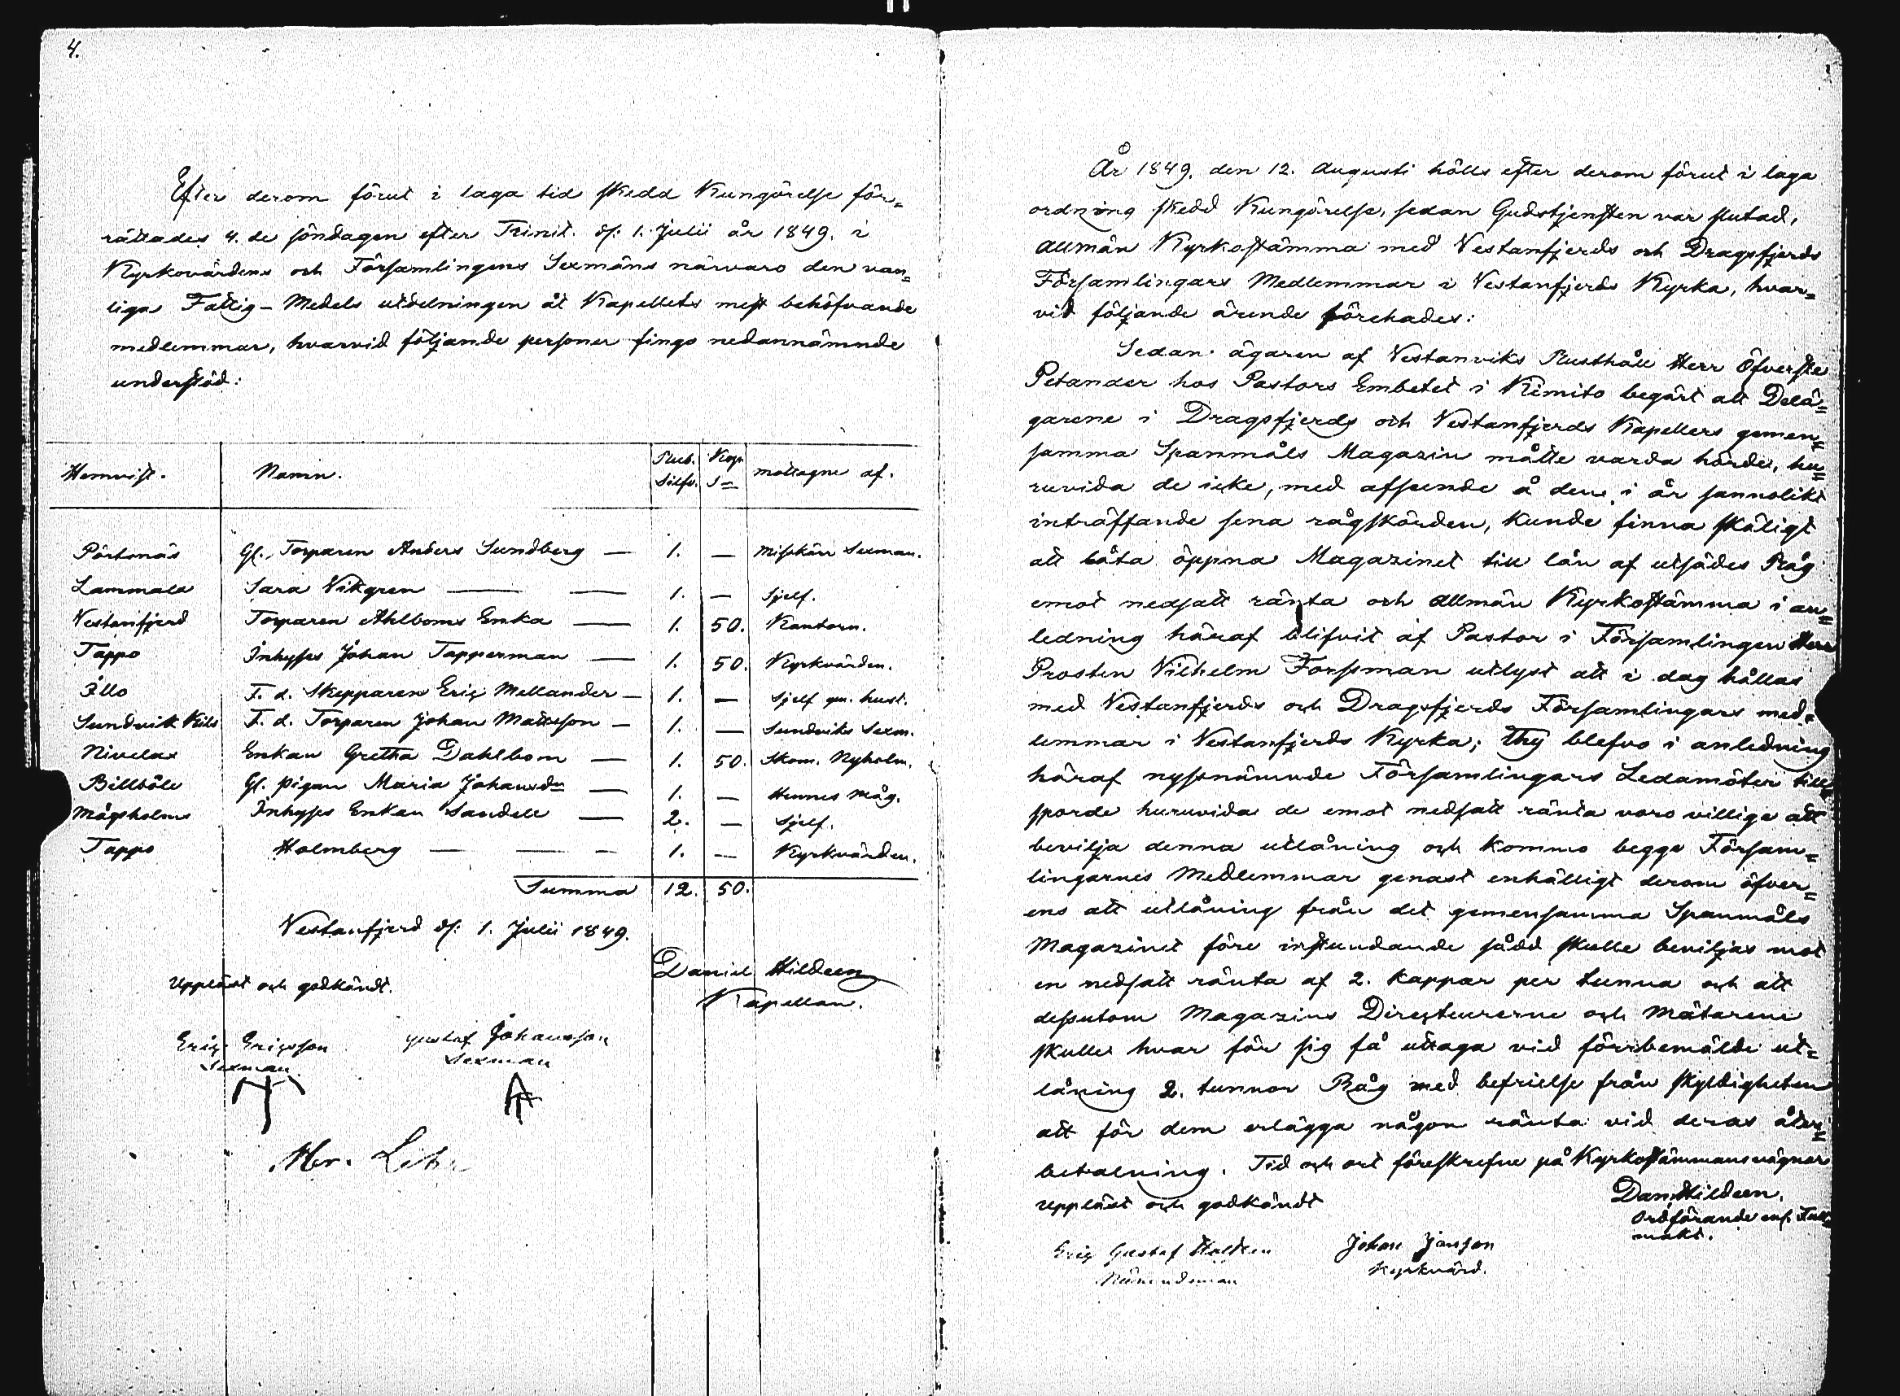 4.
Efter derom förut i laga tid skedd Kungörelse för=
rättades 4. de söndagen efter Trinit. d: 1. Julii år 1849. i
Kyrkovärdens och Församlingens Sexmäns närvaro den van=
liga Fattig-Medels utdelningen åt Kapellets mest behöfvande
medlemmar, hvarvid följande personer fingo nedannämnde
understöd:
Hemvist. Namn. Rub. Silfv. Kop. S= mottagne af.
Pörtsnäs Gl. Torparen Anders Sundberg — 1. — Misskärr Sexman.
Lammala Sara Vikgren — — 1. — Sjelf.
Vestanfjerd Torparen Ahlboms Enka — 1. 50. Kantorn.
Tappo Inhyses Johan Tapperman — 1. 50. Kyrkvärden.
Illo F. d. Skepparen Eric Mellander — 1. — Sjelf gm. hust.
Sundvik Nils F. d. Torparen Johan Mattsson — 1. — Sundviks Sexm.
Nivelax Enkan Gretha Dahlbom — 1. 50. Skom. Nyholm.
Billböle Gl. pigan Maria Johansdr — 1. — Hennes Måg.
Mågsholms Inhyses Enkan Sandell — 2. — Sjelf.
Tappo Holmberg — — — 1. — Kyrkvärden.
Summa 12. 50.
Vestanfjerd d: 1. Julii 1849.
Daniel Hildeen
Kapellan.
Uppläst och godkändt.
Eric Ericsson Gustaf Johansson
Sexman. Sexman
År 1849. den 12. Augusti hölls efter derom förut i laga
ordning skedd Kungörelse, sedan Gudstjensten var slutad,
allmän Kyrkostämma med Vestanfjerds och Dragsfjerds
Församlingars Medlemmar i Vestanfjerds Kyrka, hvar=
vid följande ärende förehades:
Sedan ägaren af Vestanviks Rusthåll Herr Öfverste
Petander hos Pastors Embetet i Kimito begärt att Delä=
garene i Dragsfjerds och Vestanfjerds Kapellers gemen=
samma Spanmåls Magazin måtte varda hörde, hu=
ruvida de icke, med afseende å den i år sannolikt
inträffande sena rågskörden, kunde finna skäligt
att låta öppna Magazinet till lån af utsädes Råg
emot nedsatt ränta och allmän Kyrkostämma i an=
ledning häraf blifvit af Pastor i Församlingen Herr
Prosten Vilhelm Forssman utlyst att i dag hållas
med Vestanfjerds och Dragsfjerds Församlingars med=
lemmar i Vestanfjerds Kyrka; Thy blefvo i anledning
häraf nyssnämnde Församlingars Ledamöter till=
sporde huruvida de emot nedsatt ränta voro villige att
bevilja denna utlåning och kommo begge Försam=
lingarnes Medlemmar genast enhälligt derom öfver=
ens att utlåning från det gemensamma Spanmåls
Magazinet före instundande sådd skulle beviljas mot
en nedsatt ränta af 2. Kappar per tunna och att
dessutom Magazins Directeurerne och Mätarene
skulle hvar för sig få uttaga vid förrbemälde ut=
låning 2. tunnor Råg med befrielse från skyldigheten
att för dem erlägga någon ränta vid deras åter=
betalning. Tid och ort föreskrefne på Kyrkostämmans vägnar
Dan. Hildeen.
Ordförande enl. Full=
makt.
Uppläst och godkändt
Eric Gustaf Johan Jansson
Nämndeman Kyrkvärd.